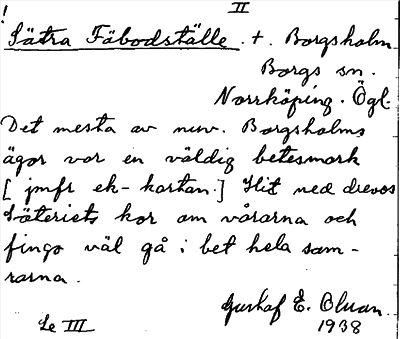 ! II
Sätra Fäbodställe. t. Borgsholm
Borgs sn.
Norrköping. Ögl.
Det mesta av nuv. Borgsholms
ägor var en väldig betesmark
[jmfr ek-kartan.] Hit ned drevos
Säteriets kor om vårarna och
fingo väl gå i bet hela som-
rarna.
Gustaf E.
1938
Se III